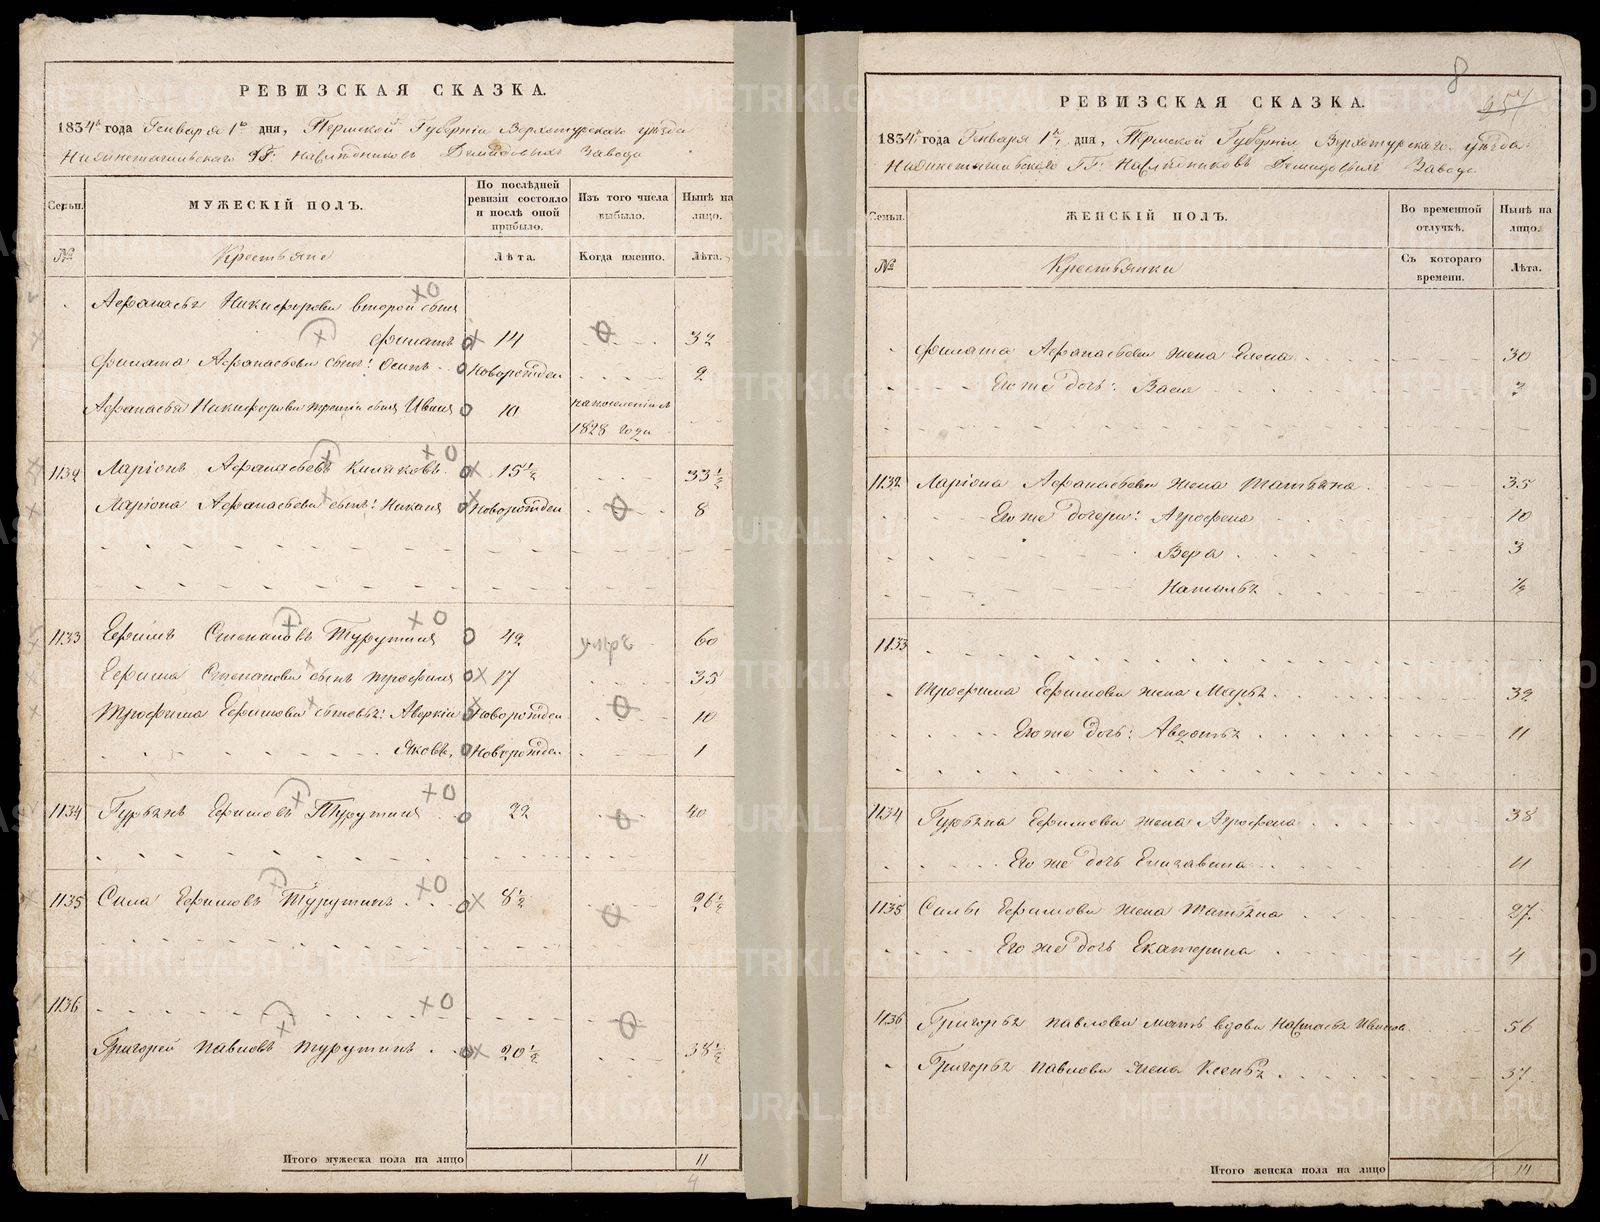 РЕВИЗСКАЯ СКАЗКА.
1834го года Генваря 1го дня, Пермской Губерніи Верхотурскаго уѣзда
Нижнетагильскаго ГГ. Наслѣдниковъ Демидовыхъ Завода
Семьи. МУЖЕСКІЙ ПОЛЪ. По послѣдней ревизіи состояло и послѣ оной прибыло. Изъ того числа выбыло. Нынѣ на лицо.
№ Крестьяне Лѣта. Когда именно. Лѣта.
Афанасья Никифорова второй сынъ
Филатъ 14 32
Филата Афанасьева сынъ: Осипъ Новорожден 2
Афанасья Никифорова третій сынъ Иванъ 10
1828 года
1132 Ларіонъ Афанасьевъ 15½ 33½
Ларіона Афанасьева сынъ: Новорожден 8
1133 Ефимъ Степановъ Турутинъ 42 умре 60
Ефима Степанова сынъ Трофимъ 17 35
Трофима Ефимова сыновья: Аверкій Новорожден 10
Яковъ Новорожден 1
1134 Гурьянъ Ефимовъ Турутинъ 22 40
1135 Сила Ефимовъ Турутинъ 8½ 26½
1136
Григорей Павловъ Турутинъ 20½ 38½
Итого мужеска пола на лицо 11
4
8
РЕВИЗСКАЯ СКАЗКА.
1834го года Генваря 1го дня, Пермской Губерніи Верхотурскаго уѣзда
Нижнетагильскаго ГГ. Наслѣдниковъ Демидовыхъ Завода
Семьи. ЖЕНСКІЙ ПОЛЪ. Во временной отлучкѣ. Нынѣ на лицо.
№ Крестьянки Съ котораго времени. Лѣта.
Филата Афанасьева жена Елена 30
Его же дочь: Васса
1132 Ларіона Афанасьева жена Татьяна 35
Его же дочери: Агрофена 10
Вера 3
Наталья ½
1133
Трофима Ефимова жена Марья 32
Его же дочь: Авдотья 11
1134 Гурьяна Ефимова жена Агрофена 38
Его же дочь Елизавета 11
1135 Силы Ефимова жена Татьяна 27
Его же дочь Екатерина 4
1136 Григорья Павлова мать вдова Настасья Иванова 56
Григорья Павлова жена 37
Итого женска пола на лицо 14
METRIKI.GASO-URAL.RU